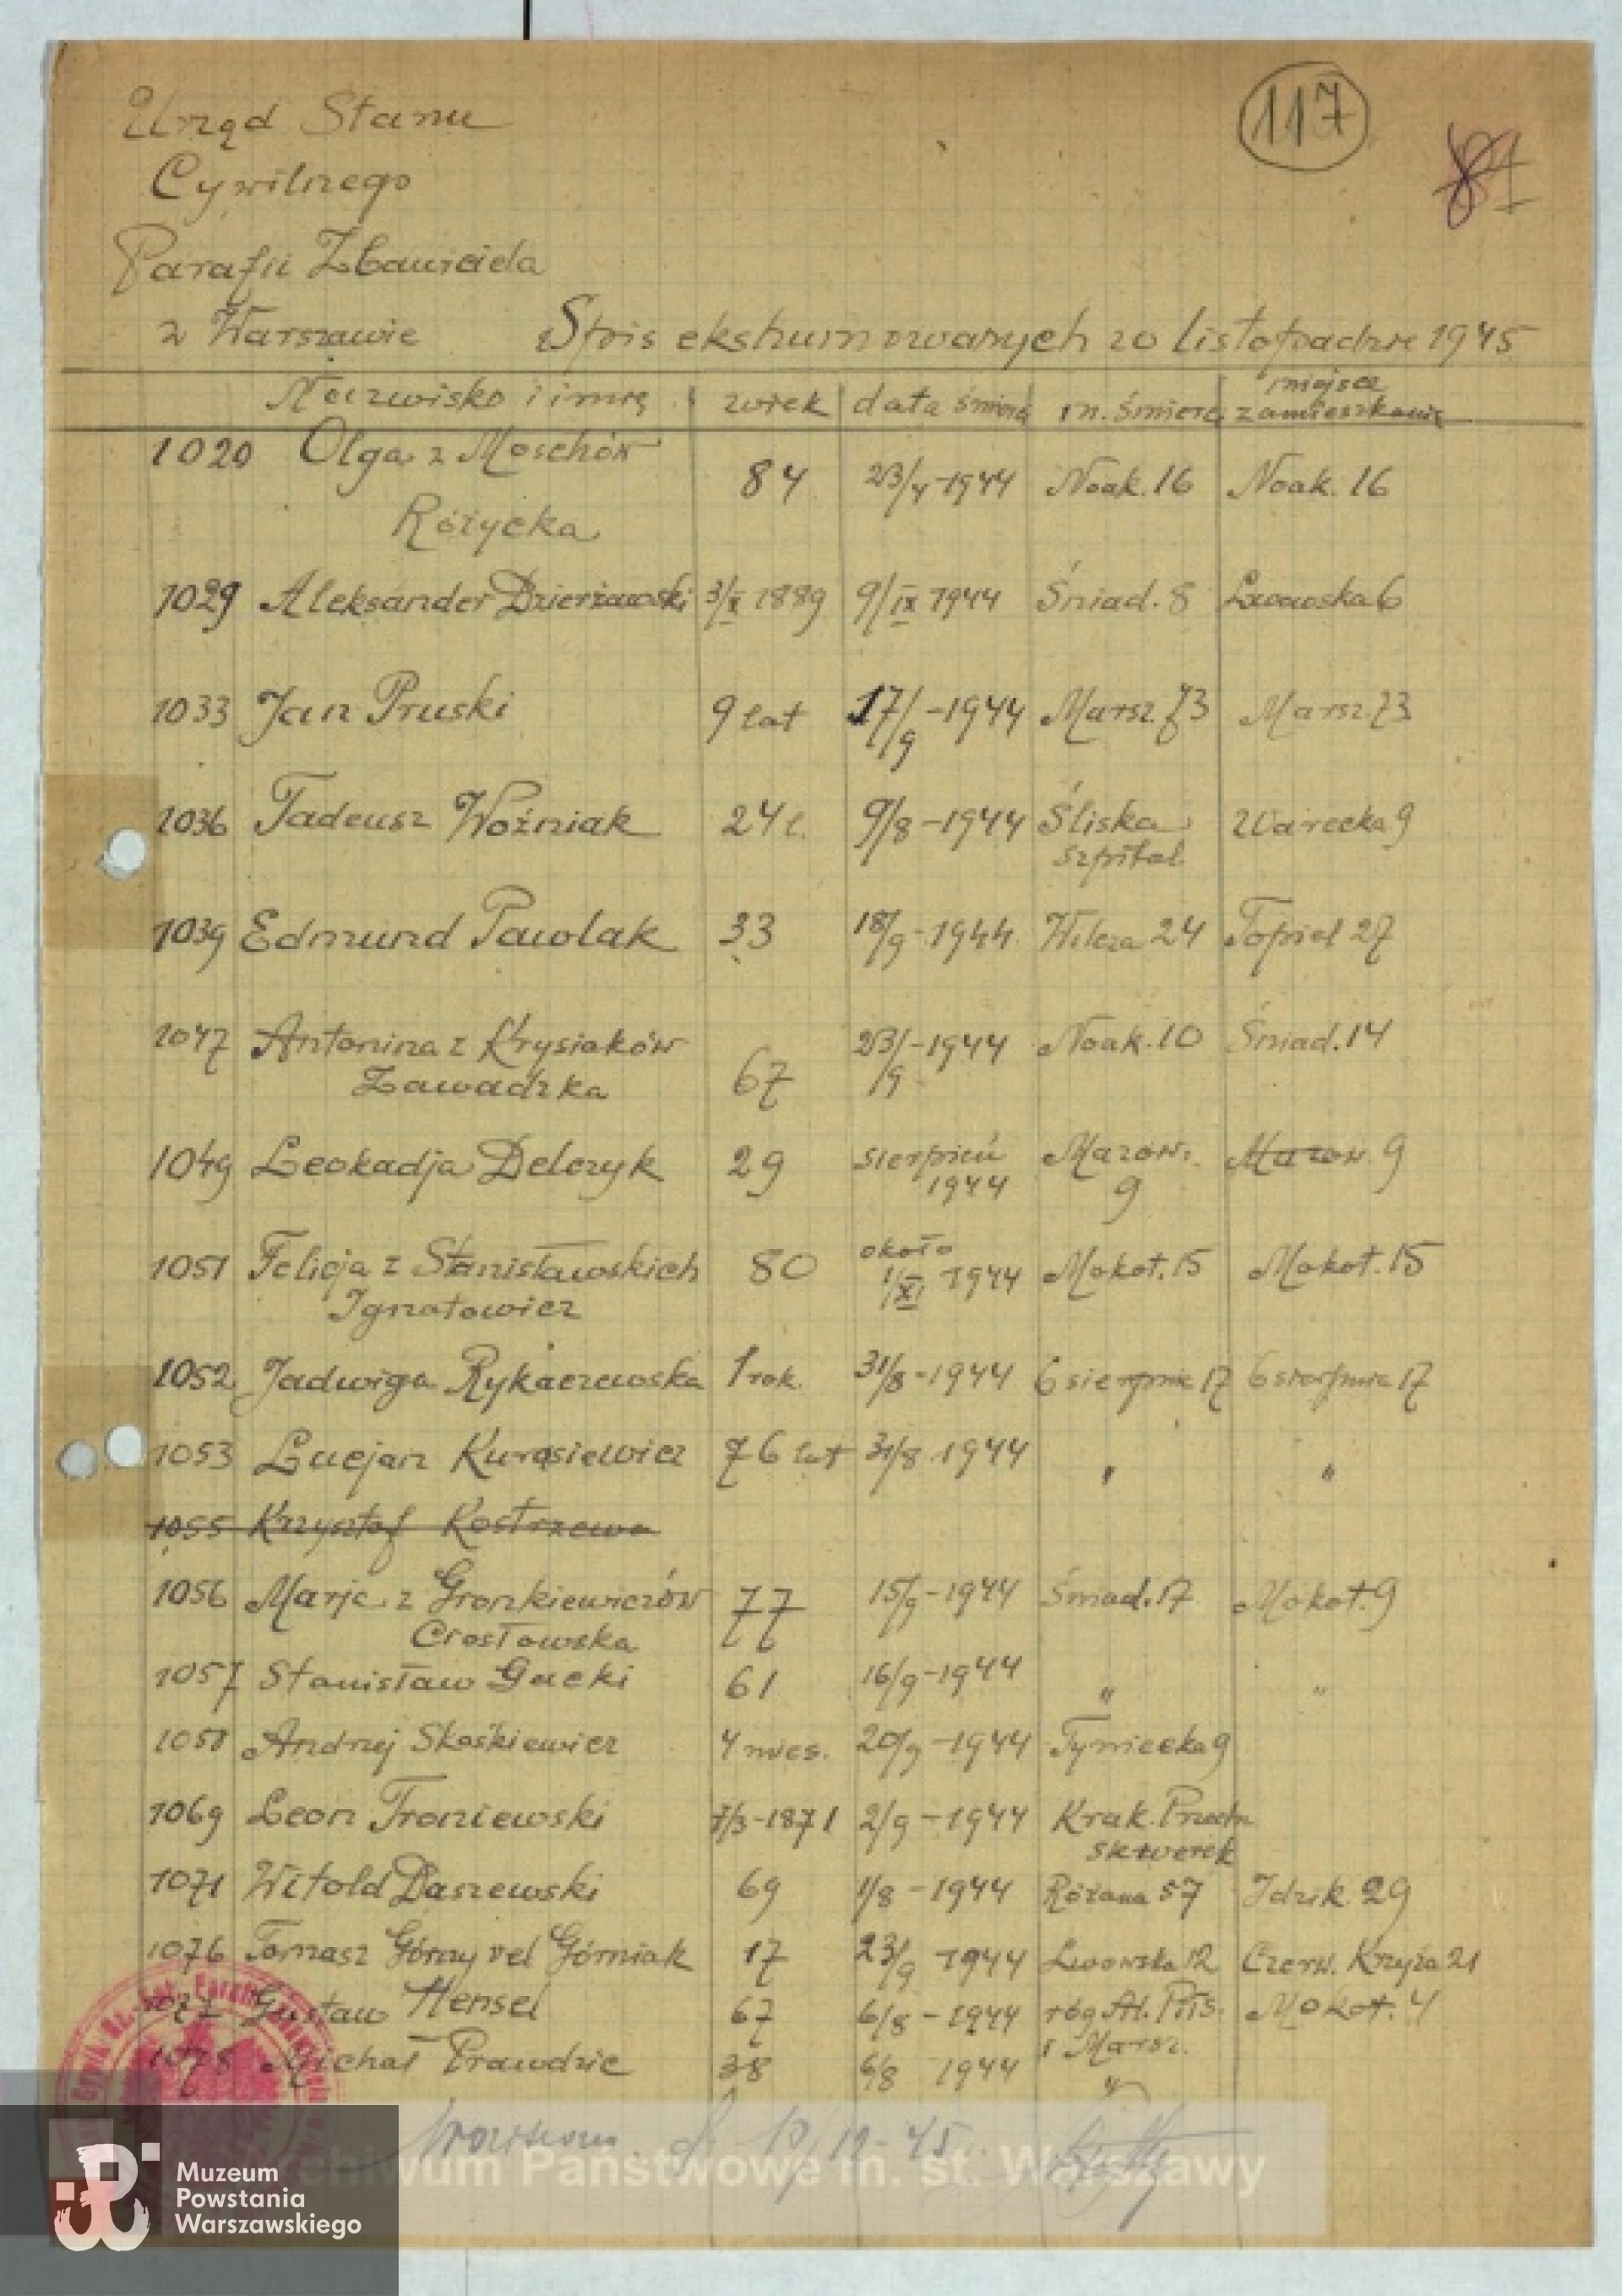 117
81
Urząd Stanu
Cywilnego
Parafii Zbawiciela
w Warszawie Spis ekshumowanych w listopadzie 1945
Nazwisko i imię wiek data śmierci m. śmierci miejsce zamieszkania
1020 Olga z Moschów Różycka 84 23/4-1944 Noak. 16 Noak. 16
1029 Aleksander Dzierżawski 3/X 1889 9/IX 1944 Śniad. 8 Lwowska 6
1033 Jan Pruski 9 lat 17/9-1944 Marsz. 73 Marsz. 73
1036 Tadeusz Woźniak 24 l. 9/8-1944 Śliska szpital Warecka 9
1039 Edmund Pawlak 33 18/9-1944 Wilcza 24 Topiel 27
1047 Antonina z Krysiaków Zawadzka 67 23/9-1944 Noak. 10 Śniad. 14
1049 Leokadja Delczyk 29 sierpień 1944 Mazow. 9 Mazow. 9
1051 Felicja z Stanisławskich Ignatowicz 80 około 1/XI 1944 Mokot. 15 Mokot. 15
1052 Jadwiga Rykaczewska 1 rok. 31/8-1944 6 sierpnia 17 6 sierpnia 17
1053 Lucjan Kurasiewicz 76 lat 31/8 1944 " "
1055 Krzysztof Kostrzewa
1056 Marja z Gronkiewiczów Crosłowska 77 15/9-1944 Śniad. 17 Mokot. 9
1057 Stanisław Gacki 61 16/9-1944 " "
1058 Andrzej Skaśkiewicz 4 mies. 20/9-1944 Tyniecka 9
1069 Leon Troniewski 7/3-1871 2/9-1944 Krak. Przedm skwerek
1071 Witold Daszewski 69 1/8-1944 Różana 57 Idzik. 29
1076 Tomasz Górny vel Górniak 17 23/9 1944 Lwowska 12 Czerw. Krzyża 21
1077 Gustaw Hensel 67 6/8-1944 róg Al. Piłs. i Marsz. Mokot. 4
1078 Michał Prawdzic 38 6/8 1944 "
Warszawa d. 10/12-45
Archiwum Państwowe m. st. Warszawy
Muzeum
Powstania
Warszawskiego